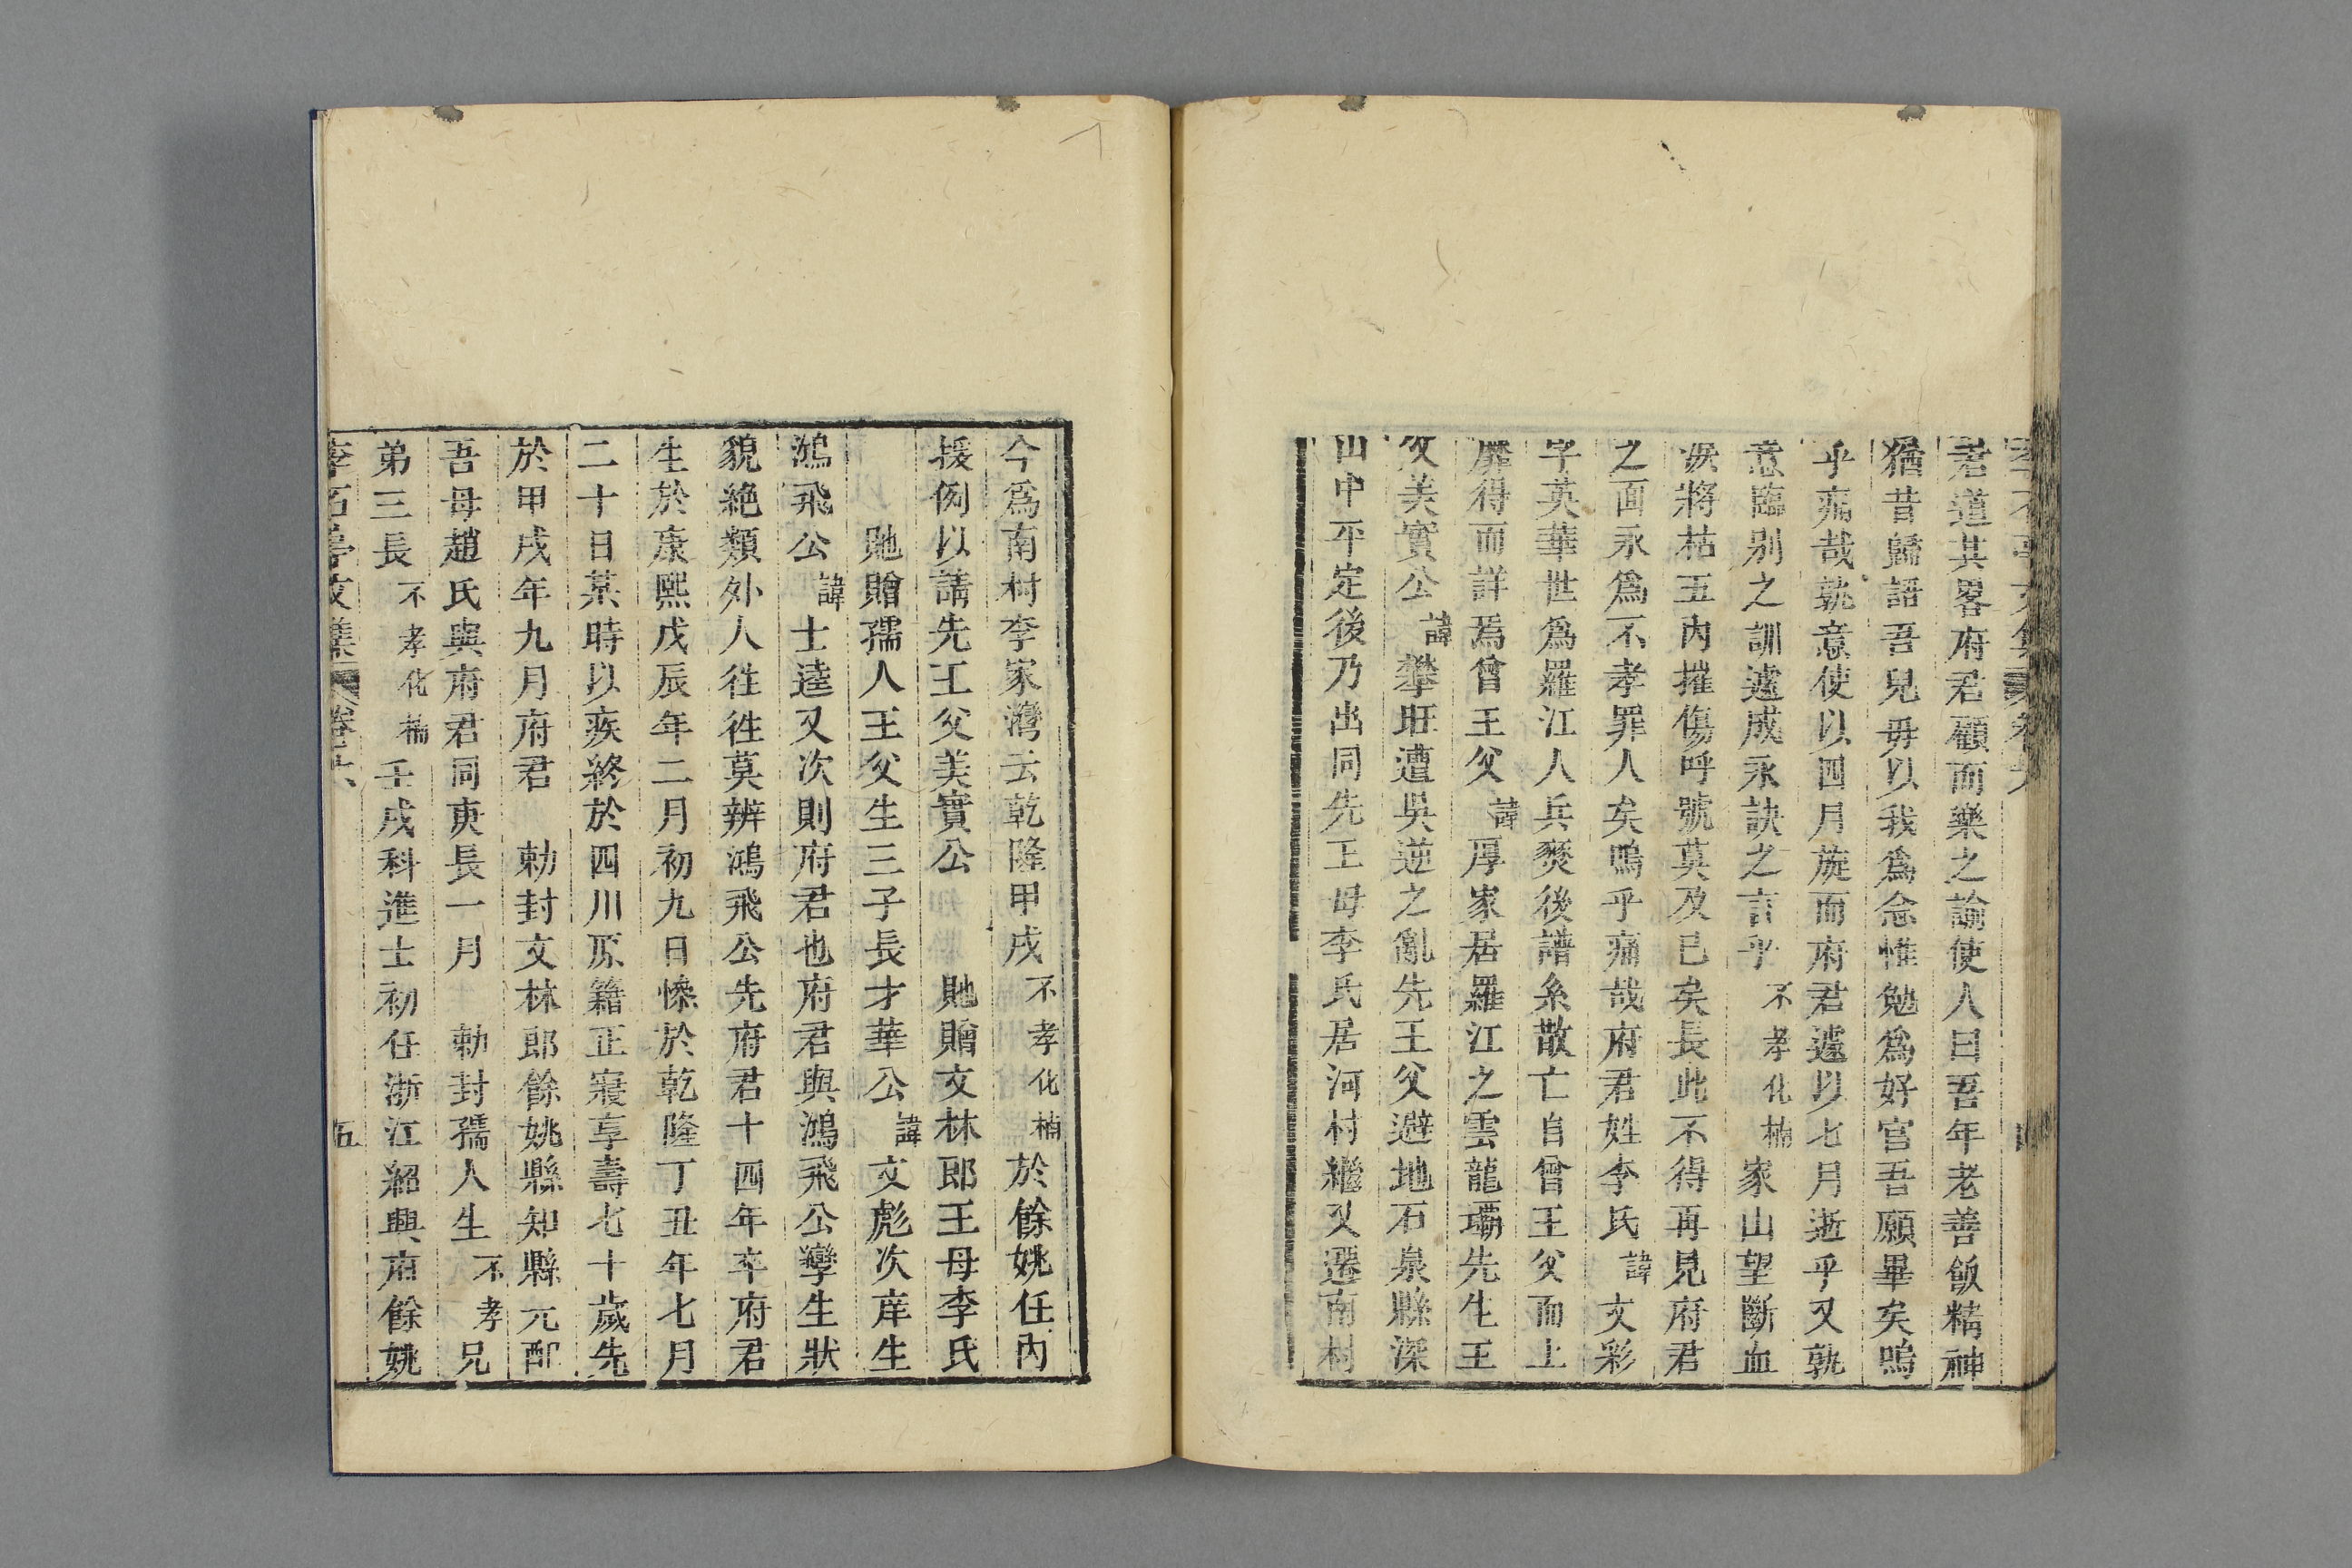 君道其畧府君顧而樂之諭使人曰吾年老善飯精神
猶昔歸語吾兒毋以我爲念惟勉爲好官吾願畢矣嗚
乎痛哉孰意使以四月旋而府君遽以七月逝乎又孰
意臨别之訓遽成永訣之言乎不孝化楠家山望斷血
淚將枯五內摧傷呼號莫及已矣長此不得再見府君
之面永爲不孝罪人矣嗚乎痛哉府君姓李氏諱文彩
字英華世爲羅江人兵燹後譜系散亡自曾王父而上
靡得而詳焉曾王父諱厚家居羅江之雲龍壩先生王
父美實公諱攀旺遭吳逆之亂先王父避地石泉縣深
山中平定後乃出同先王母李氏居河村繼又遷南村
今爲南村李家灣云乾隆甲戌不孝化楠於餘姚任內
援例以請先王父美實公　貤贈文林郎王母李氏
貤贈孺人王父生三子長才華公諱文彪次庠生
鴻飛公諱士逵又次則府君也府君與鴻飛公孿生狀
貌絶類外人徃徃莫辨鴻飛公先府君十四年卒府君
生於康熙戊辰年二月初九日慘於乾隆丁丑年七月
二十日某時以疾終於四川原籍正寢享壽七十歲先
於甲戌年九月府君　勅封文林郎餘姚縣知縣元配
吾母趙氏與府君同庚長一月　勅封孺人生不孝兄
弟三長不孝化楠壬戌科進士初任浙江紹興府餘姚
李石亭文集 卷六 五